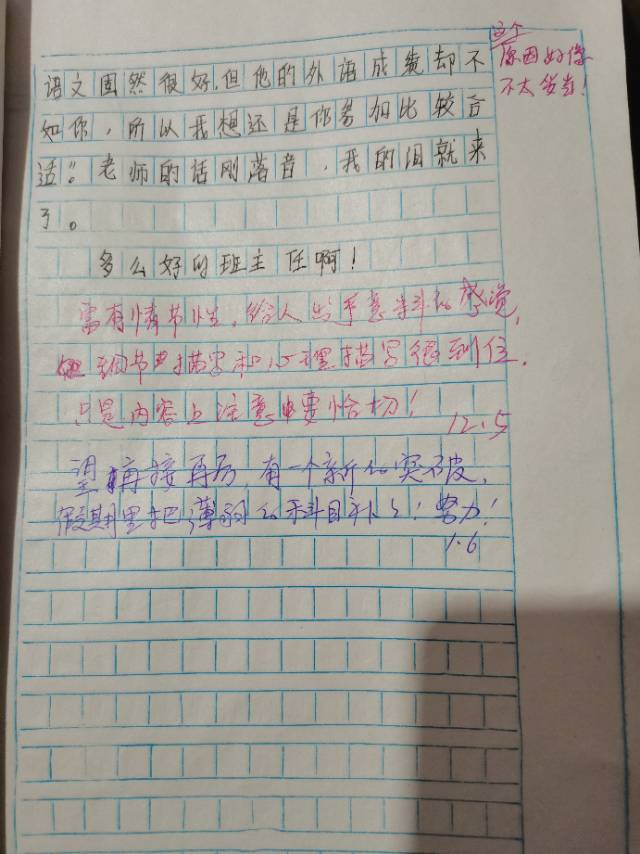 这个
原因好像
不太妥当！
语文固然很好,但他的外语成绩却不
如你，所以我想还是你参加比较合
适”。老师的话刚落音，我的泪就来
了。
多么好的班主任啊！
富有情节性，给人出乎意料的感觉，
细节描写和心理描写很到位.
只是内容上注意要恰切！
12.5
望再接再厉，有一个新的突破，
假期里把薄弱的科目补上！努力！
1.6